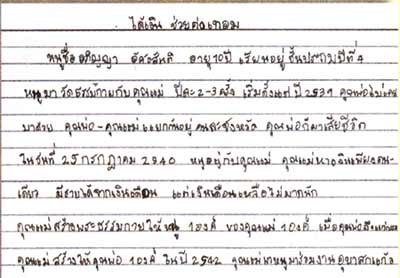 ได้เงิน ช่วยต่อเทอม
หนูชื่อ อภิญญา อัศวสันติ อายุ 10 ปี เรียนอยู่ ชั้นประถมปีที่ 4
หนูมาวัดธรรมกายกับคุณแม่ ปีละ 2-3 ครั้ง เริ่มตั้งแต่ ปี 2539 คุณพ่อไม่เคย
มาด้วย คุณพ่อ-คุณแม่แยกกันอยู่คนละจังหวัด คุณพ่อก็มาเสียชีวิต
ในวันที่ 25 กรกฎาคม 2540 หนูอยู่กับคุณแม่ คุณแม่หาเงินเพียงคน-
เดียว มีรายได้จากเงินเดือน แต่เงินเดือนเหลือไม่มากนัก
คุณแม่สร้างพระธรรมกายให้หนู 1 องค์ ของคุณแม่ 1 องค์ เมื่อคุณพ่อ
คุณแม่สร้างให้คุณพ่อ 1 องค์ ในปี 2542 คุณแม่พาหนูมาร่วมงานอุบาสกแก้ว